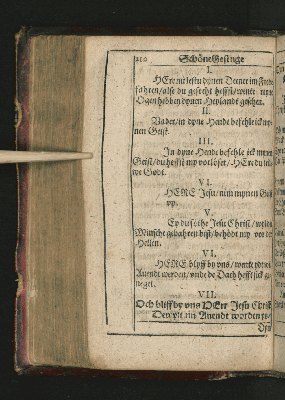 210 Schöne Gesenge
I.
HEre nu lestu dynen Deener im Frede
fahren/alse du gesecht heffst/wente myne
Ogen hebben dynen Heylandt geseher.
II.
Vader/in dyne Hende befehle ick my-
nen Geist.
III.
In dyne Hende befehle ick mynen
Geist/du heffst my vorlöset/HEre du
we Godt.
VI.
HERE Jesu/nim mynen Geist
vp.
V.
Ey du söthe Jesu Christ/
Minsche gebahren bist/behödt my vor de
Hellen.
VI.
HERE blyff by vns/wente ydt wil
Auendt werden/vnde de Dach hefft sick ge-
neget.
VII.
Och bliff by vns HErr Jesu Christ
Dewyl ydt nu Auendt worden ys/